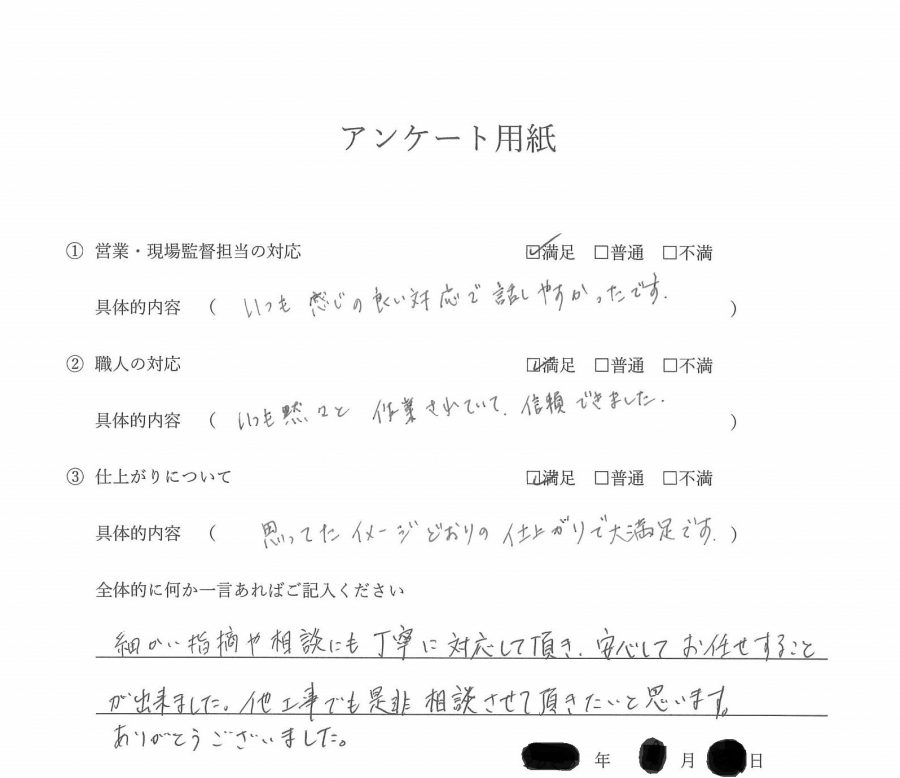 アンケート用紙
① 営業・現場監督担当の対応 ☑満足 □普通 □不満
具体的内容 ( いつも感じの良い対応で話しやすかったです。 )
② 職人の対応 ☑満足 □普通 □不満
具体的内容 ( いつも黙々と作業されていて、信頼できました。 )
③ 仕上がりについて ☑満足 □普通 □不満
具体的内容 ( 思ってたイメージどおりの仕上がりで大満足です。 )
全体的に何か一言あればご記入ください
細かい指摘や相談にも丁寧に対応して頂き、安心してお任せすること
が出来ました。他工事でも是非相談させて頂きたいと思います。
ありがとうございました。
年 月 日